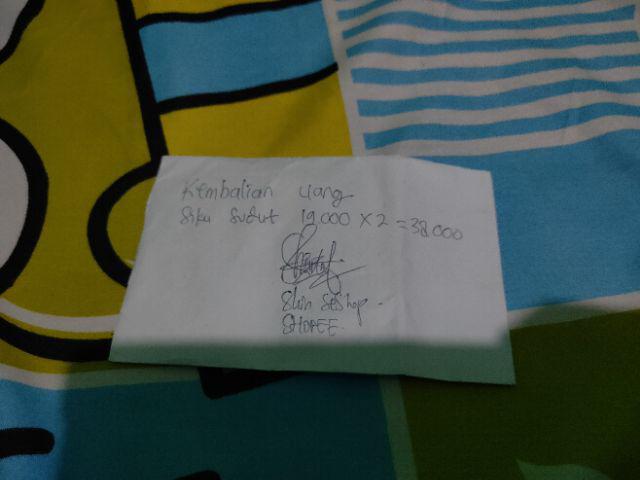 Kembalian uang
Siku Sudut 19.000 X 2 = 38.000
SHOPEE.